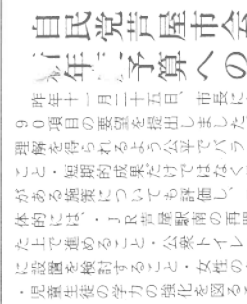 自民党芦屋市会
年 予算への
昨年十一月二十五日、市長に
90項目の要望を提出しました
理解を得られるよう公平でバラ
こと・短期的成果だけではなく
がある施策についても評価し、
体的には、・JR芦屋駅南の再
た上で進めること・公衆トイレ
に設置を検討すること・女性の
・児童生徒の学力の強化を図る